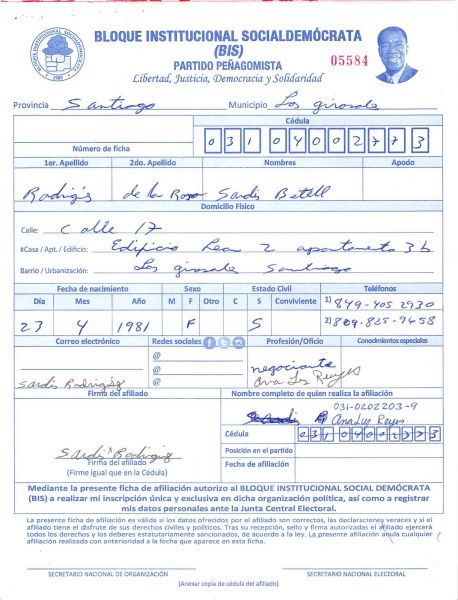 BLOQUE INSTITUCIONAL SOCIALDEMÓCRATA
(BIS)
PARTIDO PEÑAGOMISTA
05584
Libertad, Justicia, Democracia y Solidaridad
Provincia Santiago Municipio Los girosole
Cédula
Número de ficha 031 0400277 3
1er. Apellido 2do. Apellido Nombres Apodo
Rodrigs de la Rosa Sardis Betell
Domicilio Físico
Calle: Calle 17
#Casa / Apt. / Edificio: Edificio Lean 2 apartamento 3b
Barrio / Urbanización: Los girosole Santiago
Fecha de nacimiento Sexo Estado Civil Teléfonos
Día Mes Año M F Otro C S Conviviente 1) 849-405 2930
23 4 1981 F S 2) 809-825-9458
Correo electrónico Redes sociales Profesión/Oficio Conocimientos especiales
@
@ negociante
@ Ana Ls Reuyes
Sardis Rodriguez
Firma del afiliado Nombre completo de quien realiza la afiliación
031-0202203-9
Ana Luz Reyes
Cédula 031 0400277 3
Posición en el partido
Sardis Rodriguez
Firma del afiliado Fecha de afiliación
(Firme igual que en la Cédula)
Mediante la presente ficha de afiliación autorizo al BLOQUE INSTITUCIONAL SOCIAL DEMÓCRATA
(BIS) a realizar mi inscripción única y exclusiva en dicha organización política, así como a registrar
mis datos personales ante la Junta Central Electoral.
La presente ficha de afiliación es válida si los datos ofrecidos por el afiliado son correctos, las declaraciones veraces y si el
afiliado tiene el disfrute de sus derechos civiles y políticos. Tras su recepción, sello y firma autorizadas el afiliado ejercerá
todos los derechos y los deberes estatutariamente sancionados, de acuerdo a la ley. La presente afiliación anula cualquier
afiliación realizada con anterioridad a la fecha que aparece en esta ficha.
SECRETARIO NACIONAL DE ORGANIZACIÓN SECRETARIO NACIONAL ELECTORAL
(Anexar copia de cédula del afiliado)